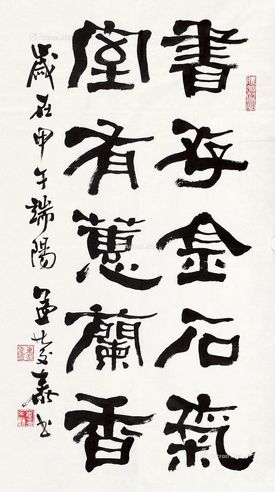 書存金石氣
室有蕙蘭香
歲在甲午端陽孟